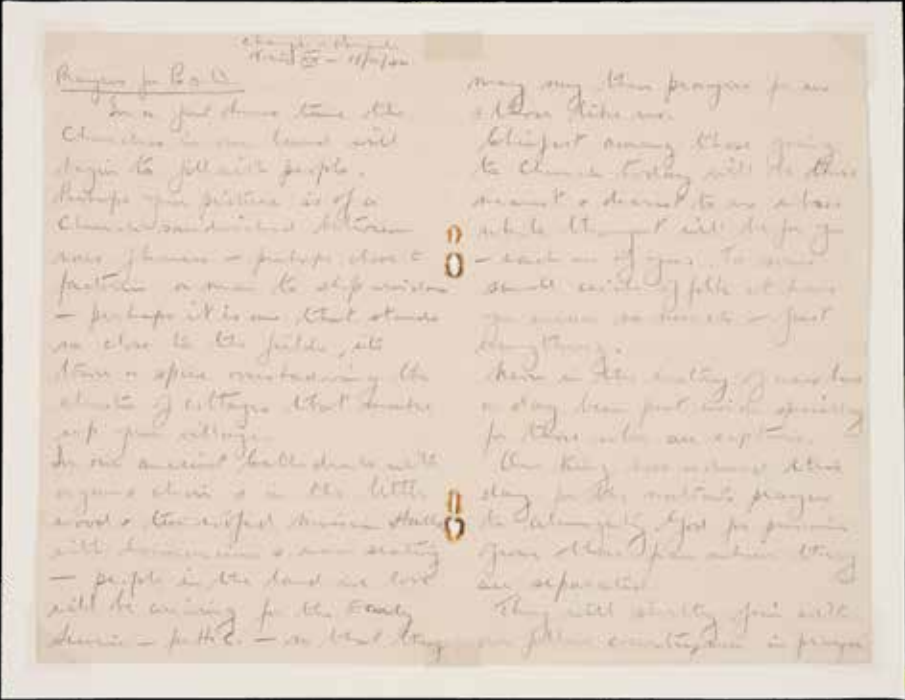 Prayers for P.O.W
In a few hours time the
Churches in our land will
begin to fill with people.
Perhaps your picture is of a
Church sandwiched between
rows houses — perhaps close to
factories or near to ship
— perhaps it is one that stands
so close to the fields, its
tower or spire overshadowing the
cluster of cottages that make
up your village.
In our ancient Cathedrals with
organs choirs & in the little
wood & tin roofed mission Halls
with harmonium & seating
— people in the land we love
will be arriving for the Early
Service — — so that they
may say their prayers for us
& those like us.
Chiefest among those going
to Church today will be those
nearest & dearest to us whose
whole thought will be for you
— each one of you. To some
small circle of folk at home
you mean so much — just
everything.
Never in the history of has
a day been put aside specially
for those who are captive.
Our King has this
day for the nation's prayers
to Almighty God for prisoners
those from whom they
are separated.
They will shortly join with
our fellow countrymen in prayer